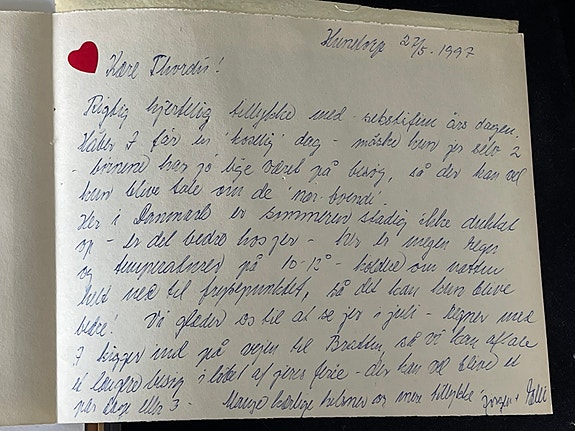 27/5-1997
Kære Thordis!
Rigtig hjertelig tillykke med sekstifem års dagen.
Håber I får en 'koselig' dag - måske kun jer selv 2
- har jo lige været på besøg, så der kan vel
kun blive tale om de 'nær-boende'.
Her i Danmark er sommeren stadig ikke dukket
op - er det bedre hos jer - her er megen regn
og temperaturer på 10-12° - koldere om natten
helt ned til frysepunktet, så det kan kun blive
bedre! Vi glæder os til at se jer i juli - regner med
I kigger ind på vejen til så vi kan aftale
et længere besøg i løbet af jeres ferie - der kan vel blive et
par dage eller 3 - Mange kærlige hilsner og igen tillykke Jørgen +